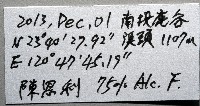 2013, Dec, 01 南投鹿谷
N 23°40'27.92" 溪頭 1107m
E 120°47'45.19"
陳恩利 75% Alc. F.